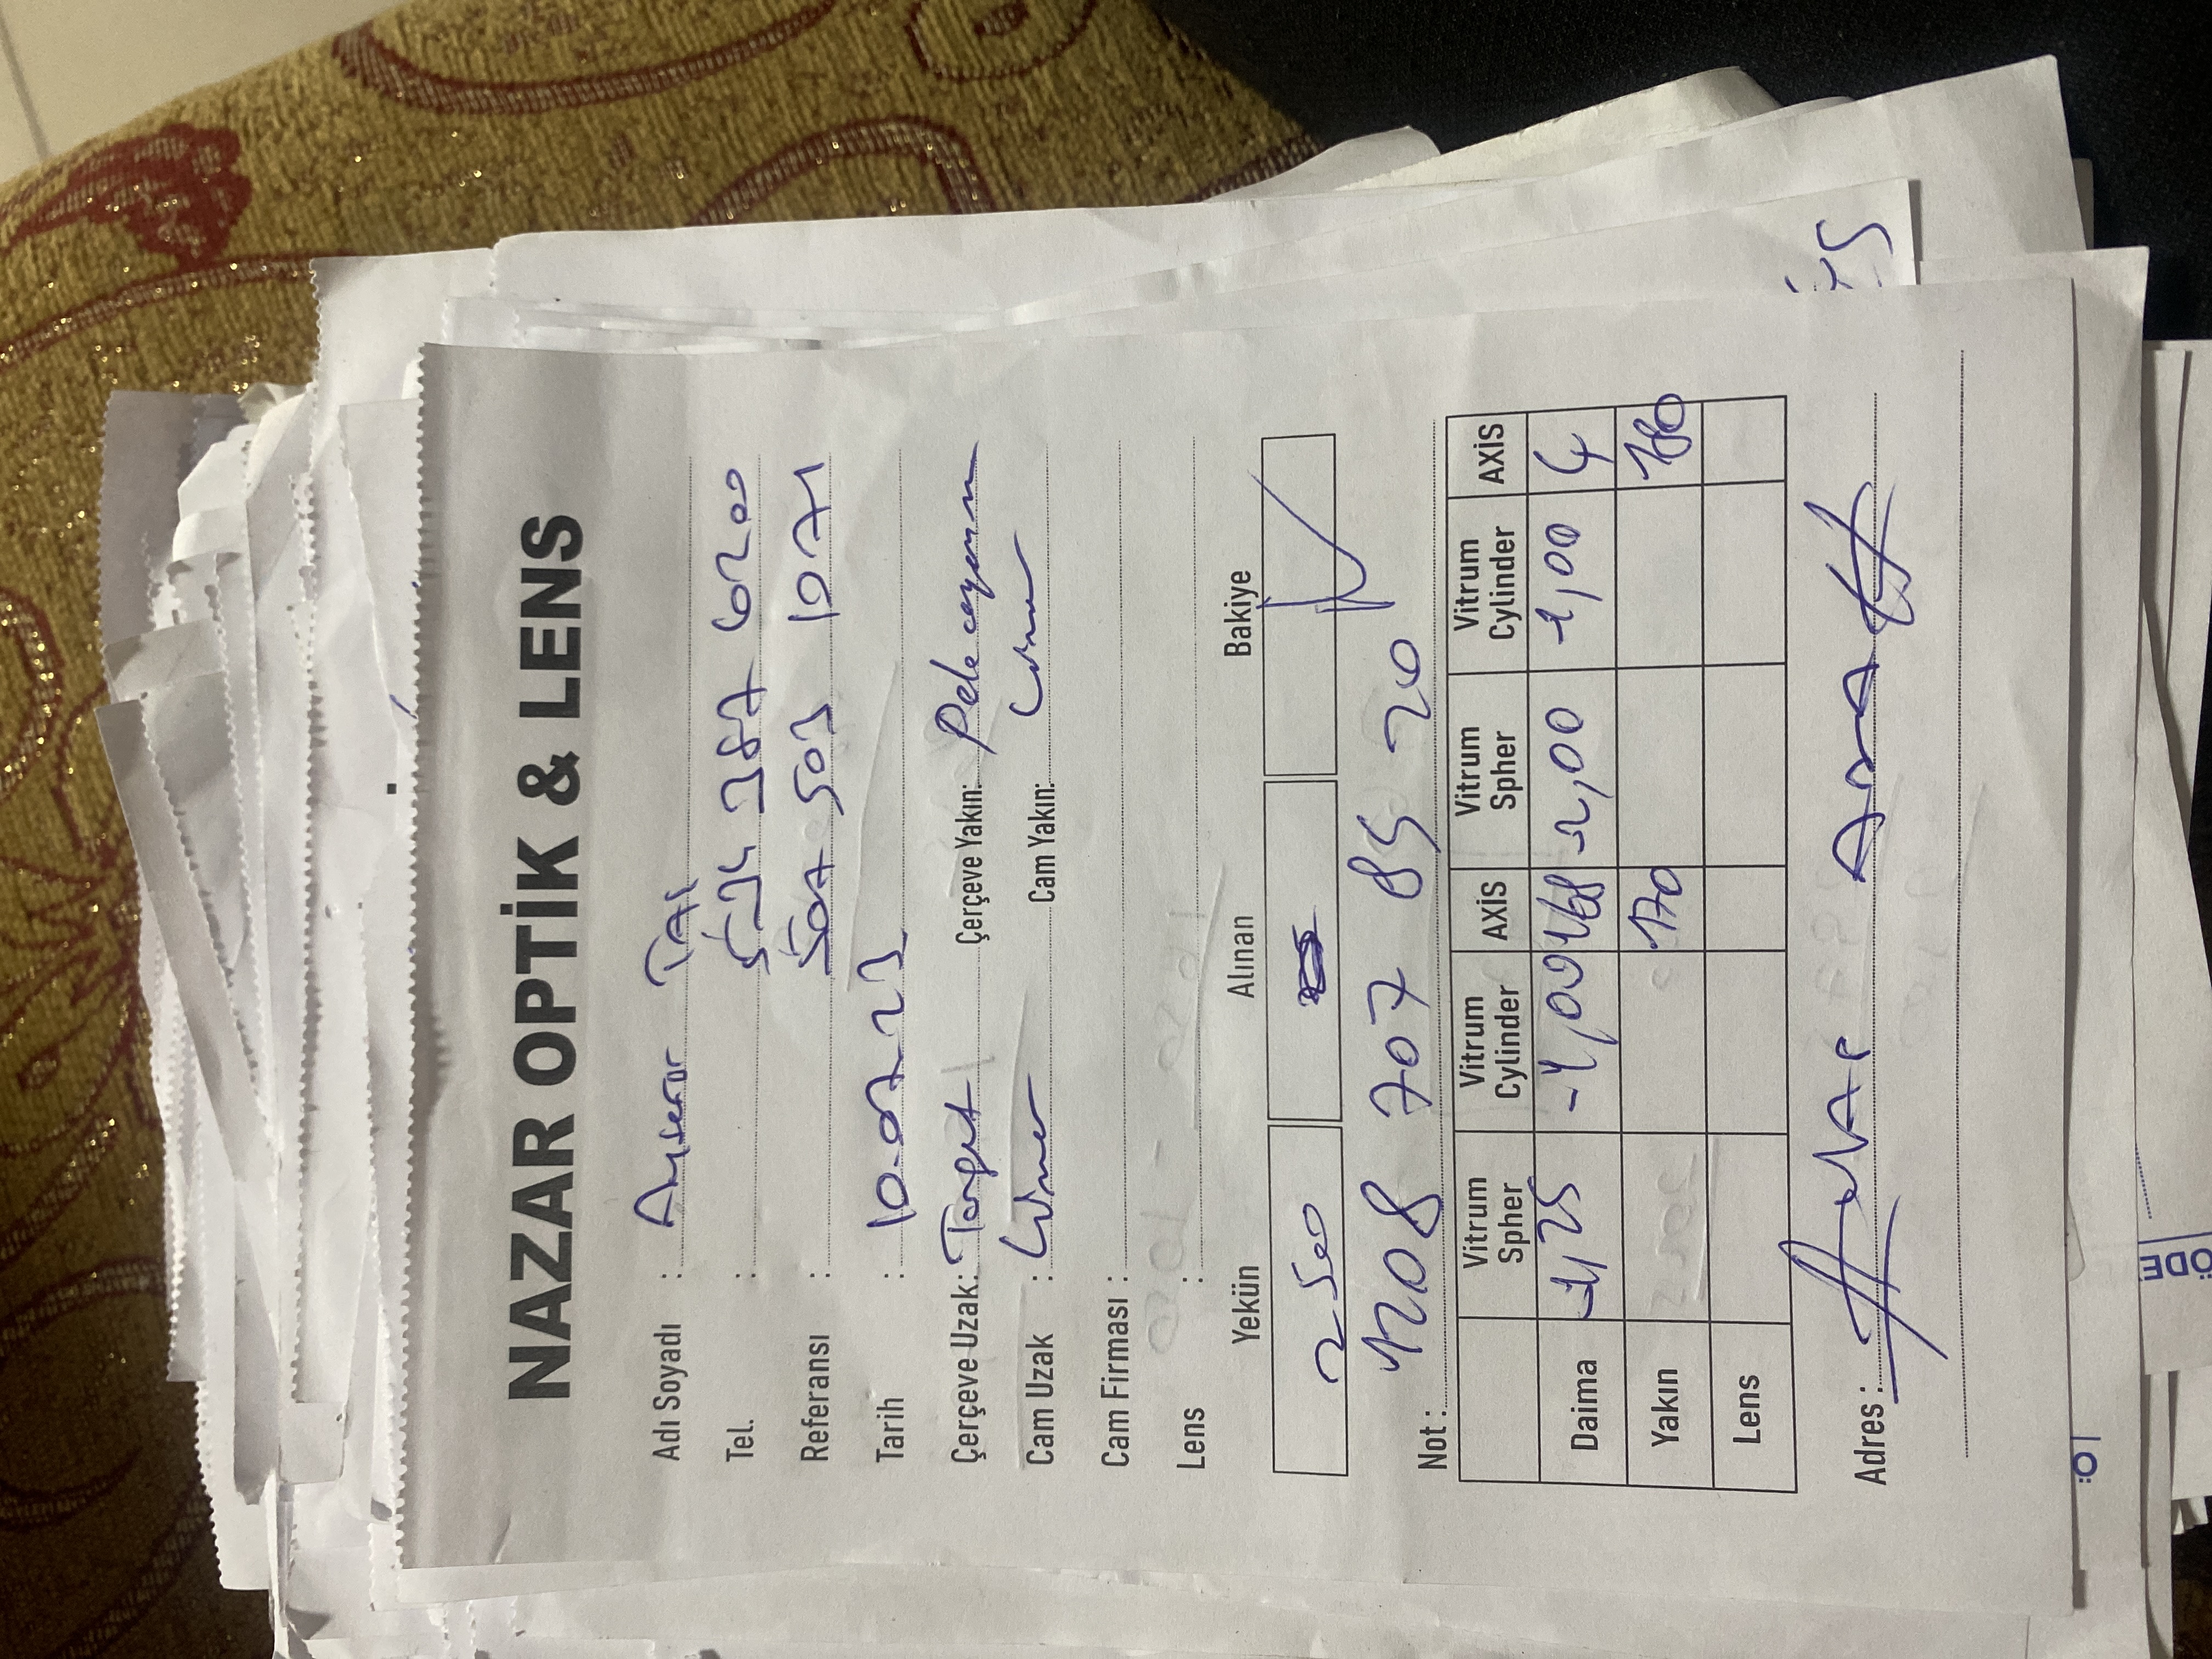 NAZAR OPTİK & LENS
Adı Soyadı :
Tel. : 534 387 6200
Referansı : 507 503 1071
Tarih : 10.07.23
Çerçeve Uzak: Target Çerçeve Yakın:
Cam Uzak : Cam Yakın:
Cam Firması :
Lens :
Yekün Alınan Bakiye
2500
Not : 1208 707 85 20
Vitrum Spher Vitrum Cylinder AXİS Vitrum Spher Vitrum Cylinder AXİS
Daima -1,25 -1,00 168 -2,00 -1,00 4
Yakın 170 180
Lens
Adres :